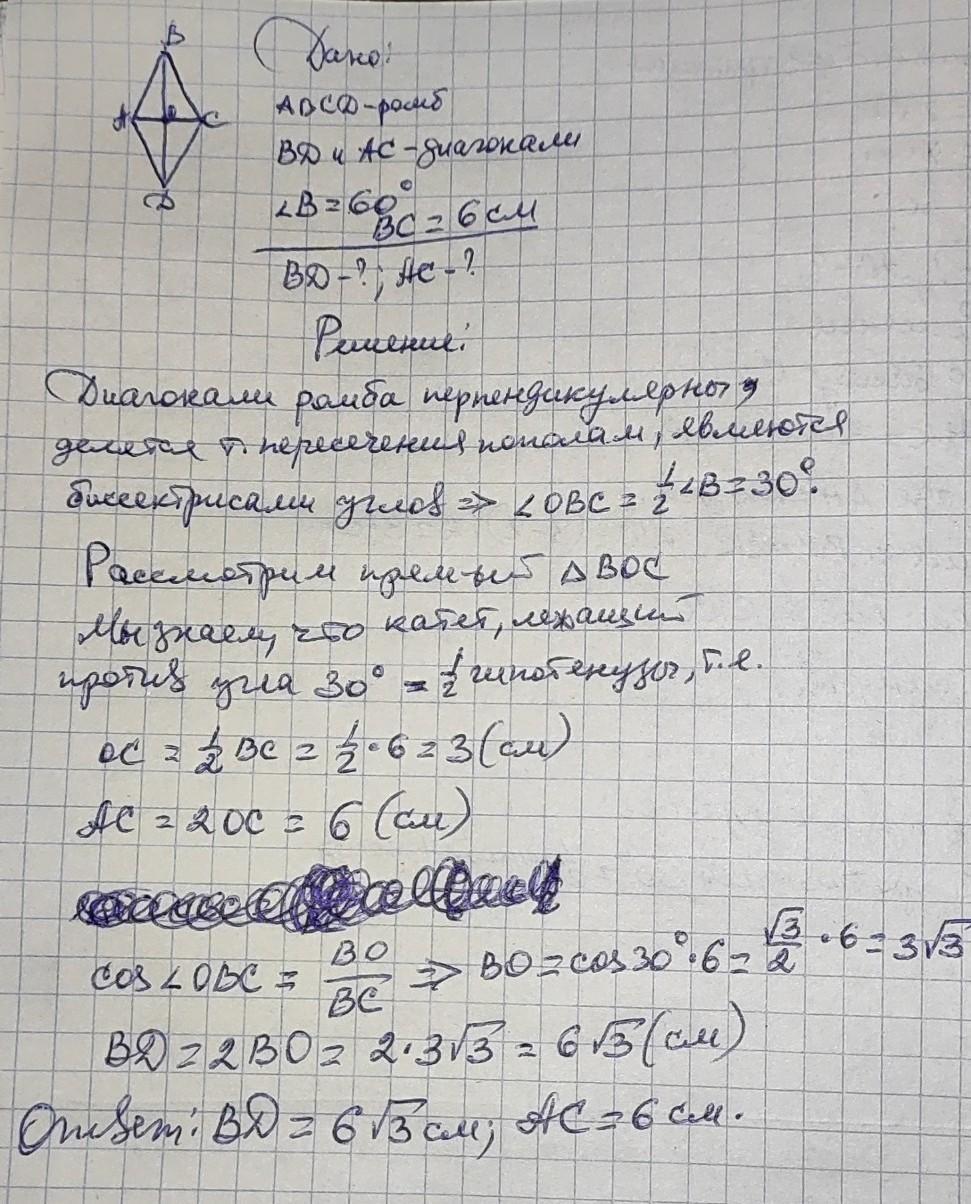 B
A
O
C
D
Дано:
ABCD-ромб
BD и AC-диагонали
∠B = 60°
BC = 6 см
BD-?; AC-?
Решение:
Диагонали ромба перпендикулярны,
делятся т. пересечения пополам, являются
биссектрисами углов => ∠OBC = 1/2 ∠B = 30°.
Рассмотрим прям-ый △BOC
Мы знаем, что катет, лежащий
против угла 30° = 1/2 гипотенузы, т.е.
OC = 1/2 BC = 1/2 · 6 = 3 (см)
AC = 2OC = 6 (см)
cos∠OBC = BO/BC => BO = cos30° · 6 = √3/2 · 6 = 3√3
BD = 2BO = 2·3√3 = 6√3 (см)
Ответ: BD = 6√3 см; AC = 6 см.